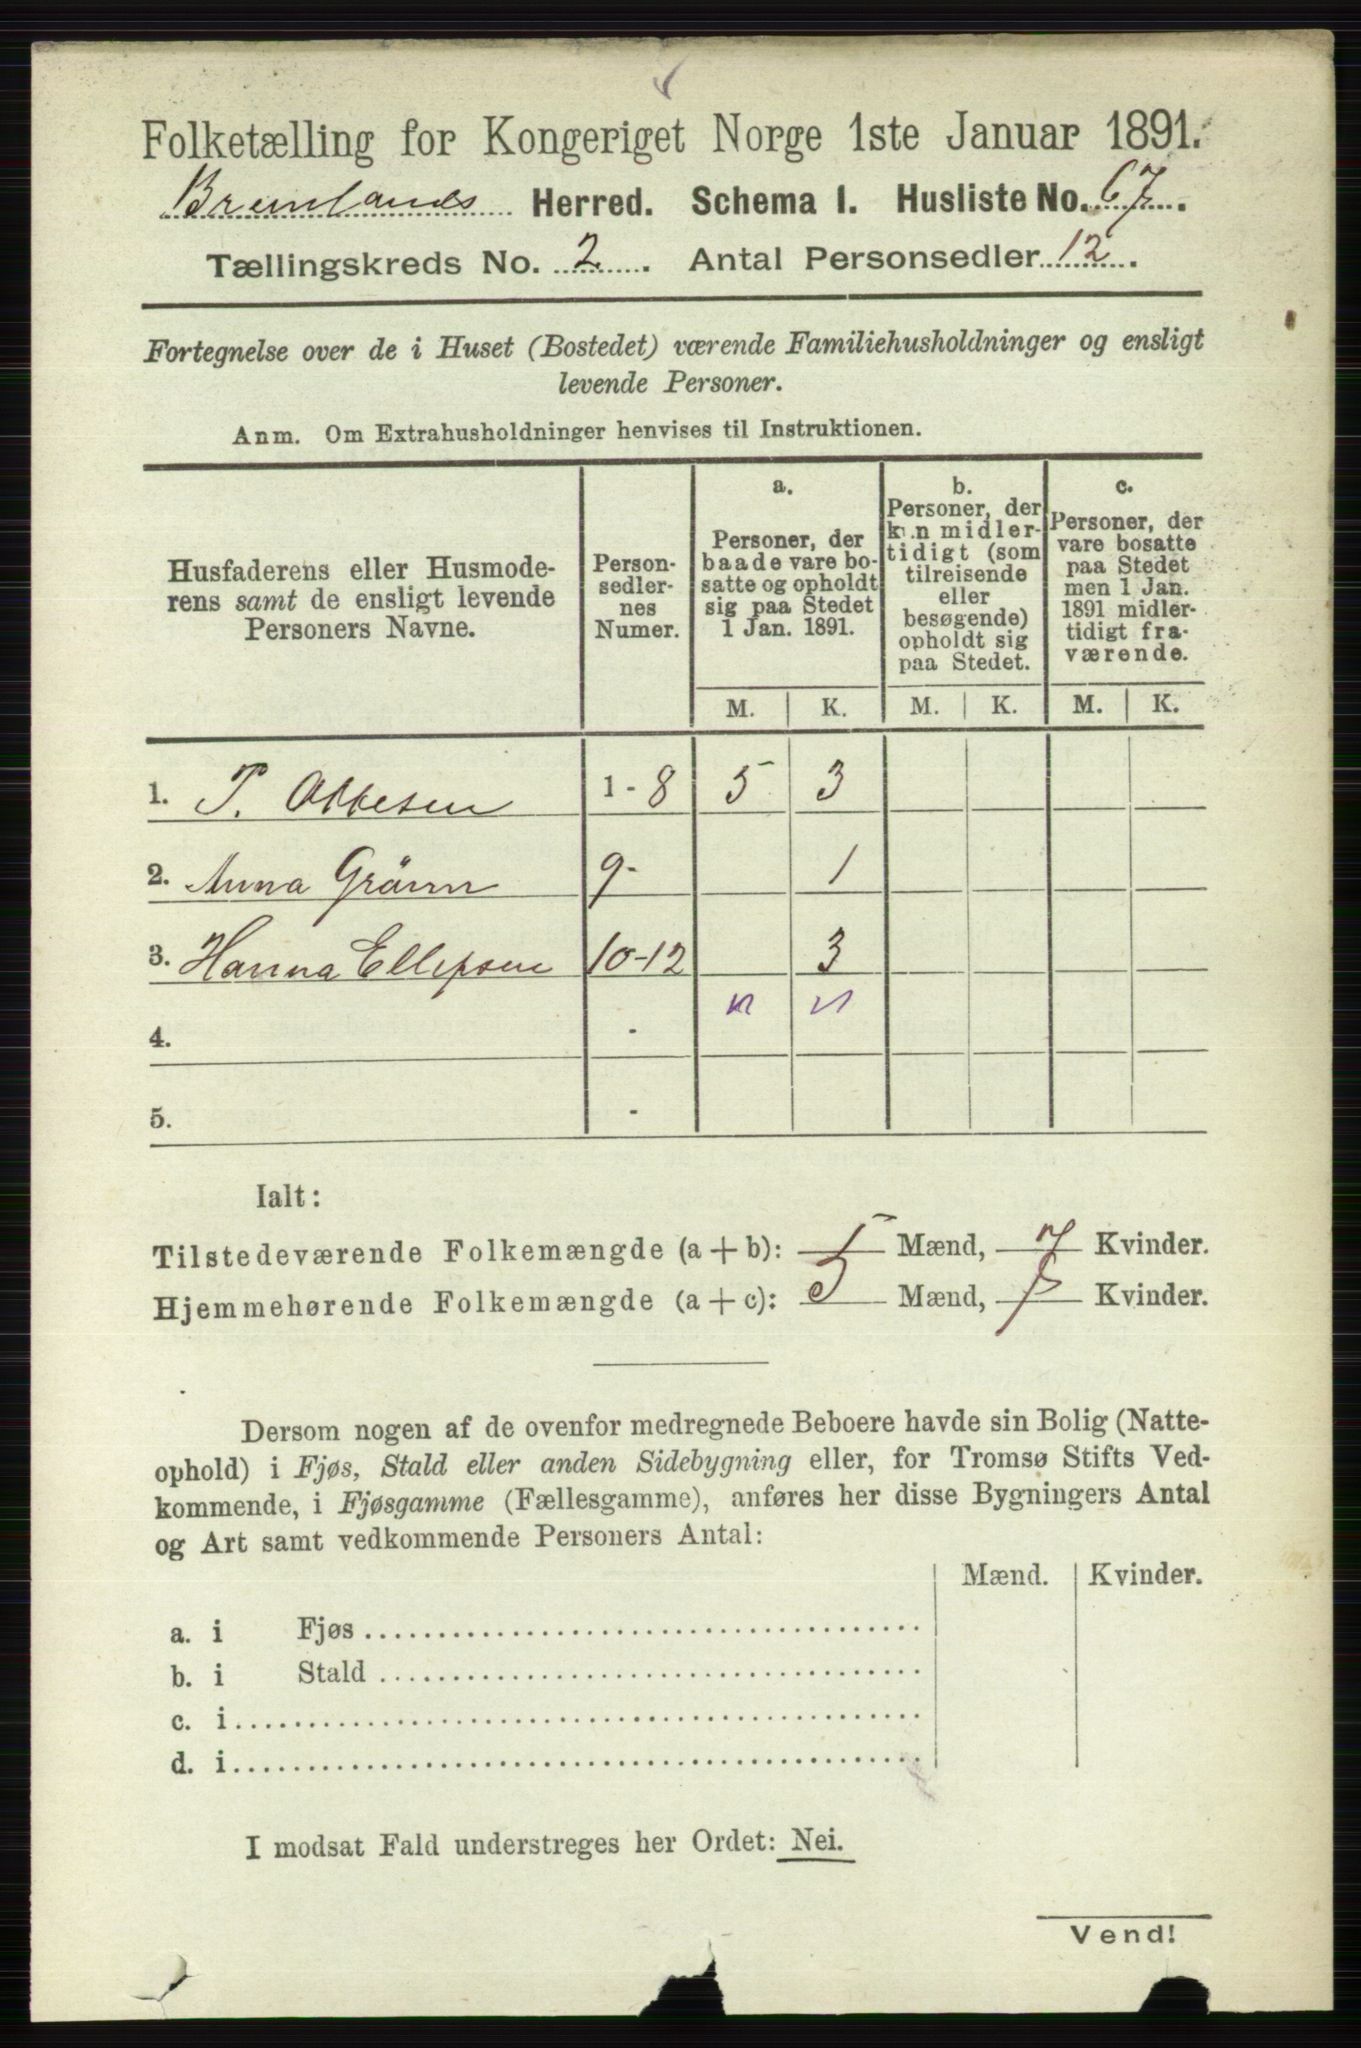 Folketælling for Kongeriget Norge 1ste Januar 1891.
Brunlanes Herred. Schema I. Husliste No. 67.
Tællingskreds No. 2. Antal Personsedler 12.
Fortegnelse over de i Huset (Bostedet) værende Familiehusholdninger og ensligt
levende Personer.
Anm. Om Extrahusholdninger henvises til Instruktionen.
Husfaderens eller Husmoderens samt de ensligt levende Personers Navne.
Personsedlernes Numer.
a. Personer, der baade vare bosatte og opholdt sig paa Stedet 1 Jan. 1891.
b. Personer, der kun midlertidigt (som tilreisende eller besøgende) opholdt sig paa Stedet.
c. Personer, der vare bosatte paa Stedet men 1 Jan. 1891 midlertidigt fraværende.
M. K. M. K. M. K.
1. T. Abbesen 1 - 8 5 3
2. Anna Grönn 9 - 1
3. Hanna Ellefsen 10-12 3
4. -
5. -
Ialt:
Tilstedeværende Folkemængde (a + b): 5 Mænd, 7 Kvinder.
Hjemmehørende Folkemængde (a + c): 5 Mænd, 7 Kvinder.
Dersom nogen af de ovenfor medregnede Beboere havde sin Bolig (Natte-
ophold) i Fjøs, Stald eller anden Sidebygning eller, for Tromsø Stifts Ved-
kommende, i Fjøsgamme (Fællesgamme), anføres her disse Bygningers Antal
og Art samt vedkommende Personers Antal:
Mænd. Kvinder.
a. i Fjøs
b. i Stald
c. i
d. i
I modsat Fald understreges her Ordet: Nei.
Vend!